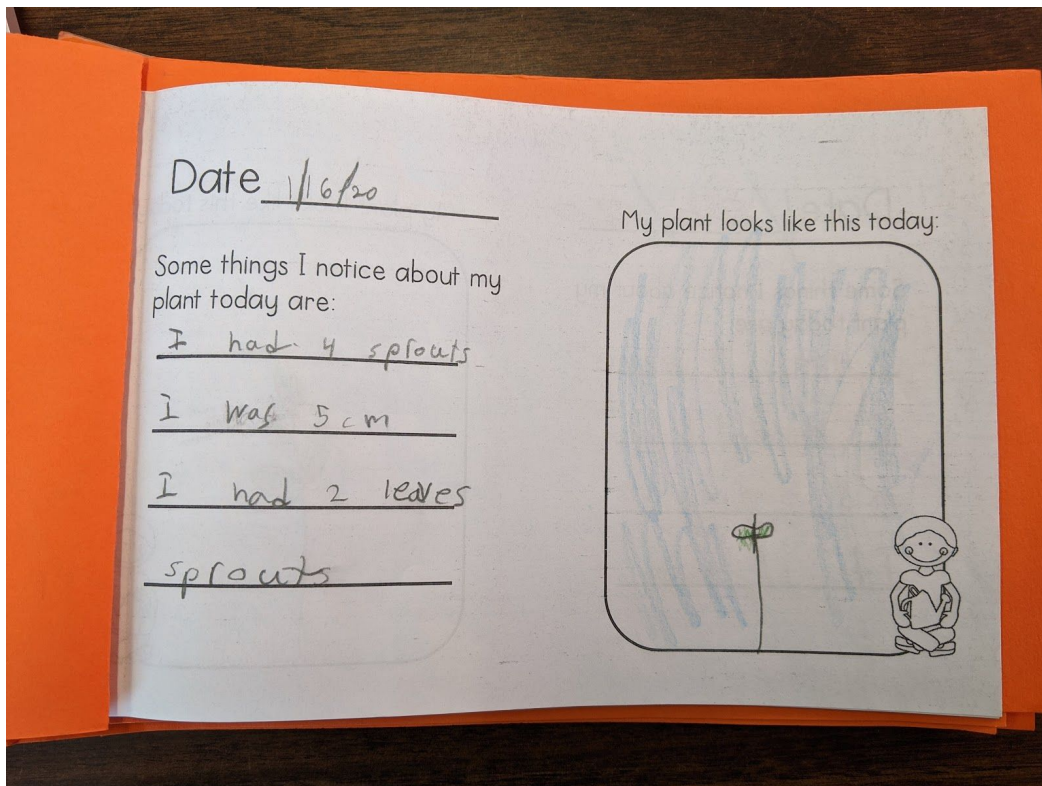 Date 1/16/20
Some things I notice about my
plant today are:
I had 4 sprouts
I was 5 cm
I had 2 leaves
sprouts
My plant looks like this today: